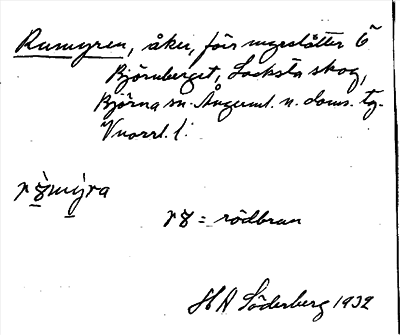 Rumyren, åker, förr myrslåtter Ö
Björnberget, Locksta skog,
Björna sn. Ångerml. n. doms. tg.
Vnorrl. l.
rȣmýra
rȣ = rödbrun
H A Söderberg 1932